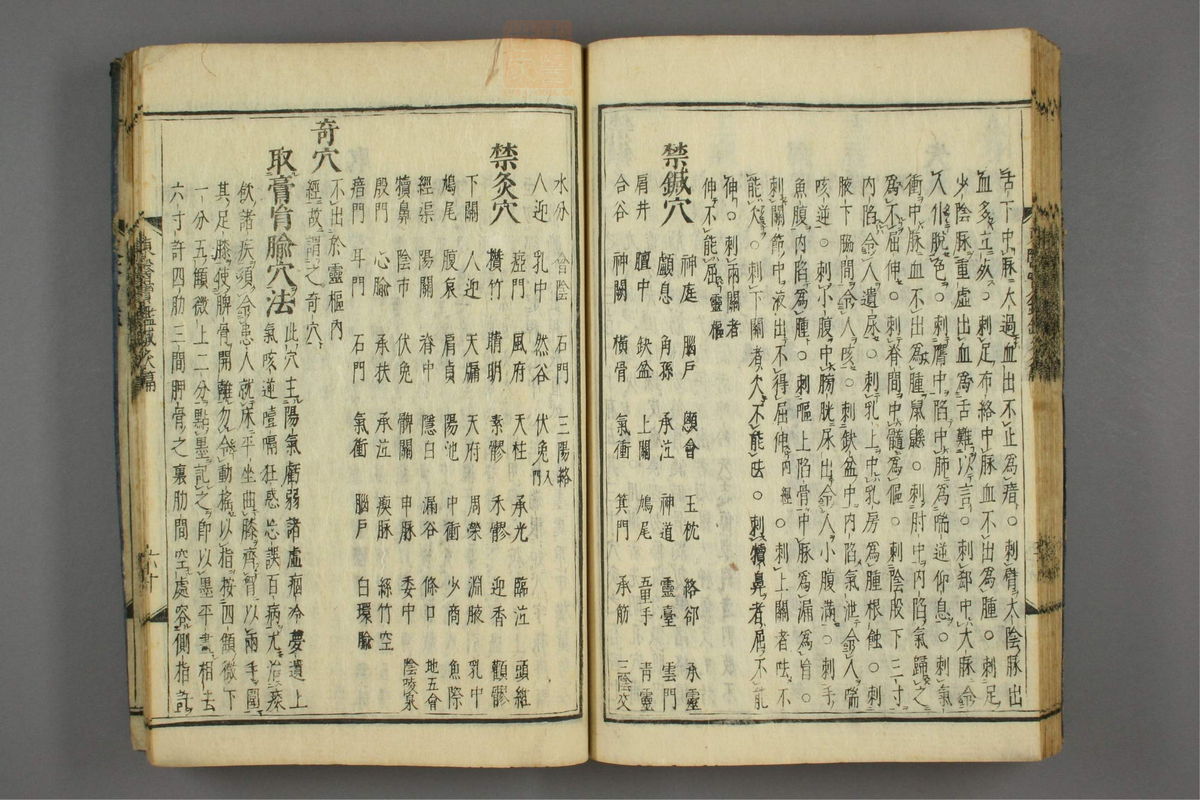 舌下中脉太過血出不止爲瘖○刺臂太陰脉出
血多立死○刺足布絡中脉血不出爲腫○刺足
少陰脉重虛出血爲舌難以言○刺郄中大脉令
人仆脫色○刺膺中陷中肺爲喘逆仰息○刺氣
衝中脉血不出爲腫鼠鼷○刺肘中内陷氣歸之
爲不屈伸○刺脊間中髓爲傴○刺陰股下三寸
内陷令人遺尿○刺乳上中乳房爲腫根蝕○刺
腋下脇間令人咳○刺缺盆中内陷氣泄令人喘
咳逆○刺小腹中膀胱尿出令人小腹滿○刺手
魚腹内陷爲腫○刺眶上陷骨中脉爲漏爲盲○
刺關節中液出不得屈伸内經○刺上關者呿不
能欠○刺下關者欠不能呿○刺犢鼻者屈不能
伸○刺兩關者
伸不能屈靈樞
禁鍼穴
神庭 腦戶 顖會 玉枕 絡郤 承靈
顱息 角孫 承泣 神道 靈臺 雲門
肩井 膻中 缺盆 上關 鳩尾 五里手 青靈
合谷 神闕 橫骨 氣衝 箕門 承筋 三陰交
水分 會陰 石門 三陽絡
人迎 乳中 然谷 伏兔入門
禁灸穴
瘂門 風府 天柱 承光 臨泣 頭維
攢竹 睛明 素髎 禾髎 迎香 顴髎
下關 人迎 天牖 天府 周榮 淵腋 乳中
鳩尾 腹哀 肩貞 陽池 中衝 少商 魚際
經渠 陽關 脊中 隱白 漏谷 條口 地五會
犢鼻 陰市 伏兔 髀關 申脉 委中 陰陵泉
殷門 心腧 承扶 承泣 瘈脉 絲竹空
瘖門 耳門 石門 氣衝 腦戶 白環腧
不出於靈樞内
奇穴
經故謂之奇穴
取膏肓腧穴法
此穴主陽氣虧弱諸虛痼冷夢遺上
氣咳逆噎嗝狂惑忘誤百病尤治痰
飲諸疾須令患人就床平坐曲膝齊胷以兩手圍
其足膝使脾骨開離勿令動搖以指按四顀微下
一分五顀微上二分點墨記之即以墨平畫相去
六寸許四肋三間胛骨之裏肋間空處容側指許